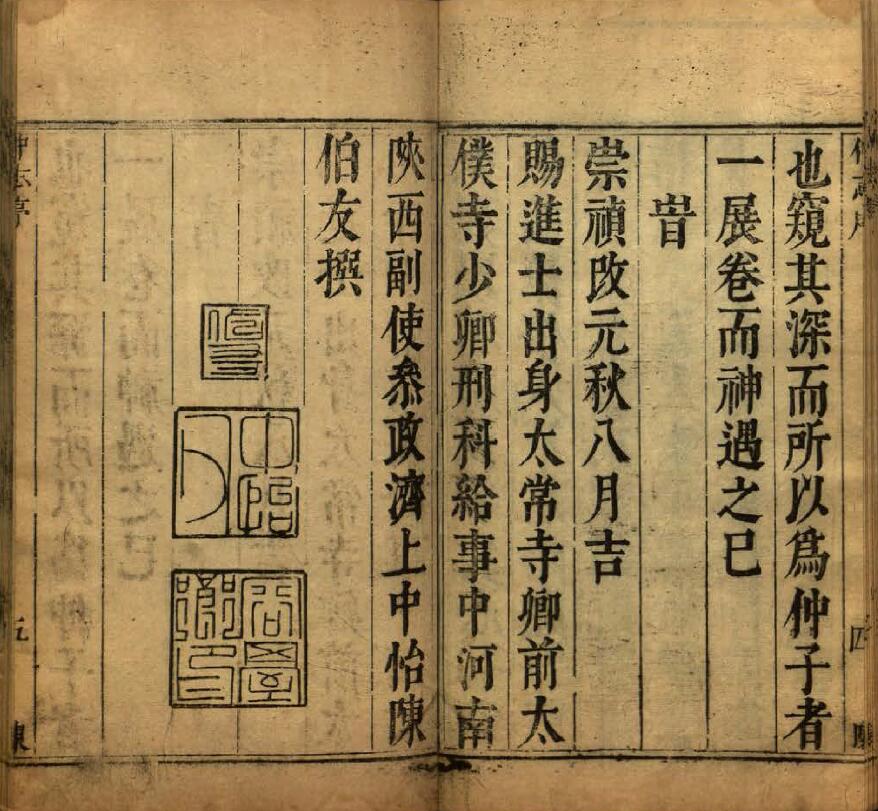 四
也窺其深而所以爲仲子者
一展卷而神遇之已
旹
崇禎改元秋八月吉
賜進士出身太常寺卿前太
僕寺少卿刑科給事中河南
陝西副使叅政濟上中怡陳
伯友撰
伯友
五